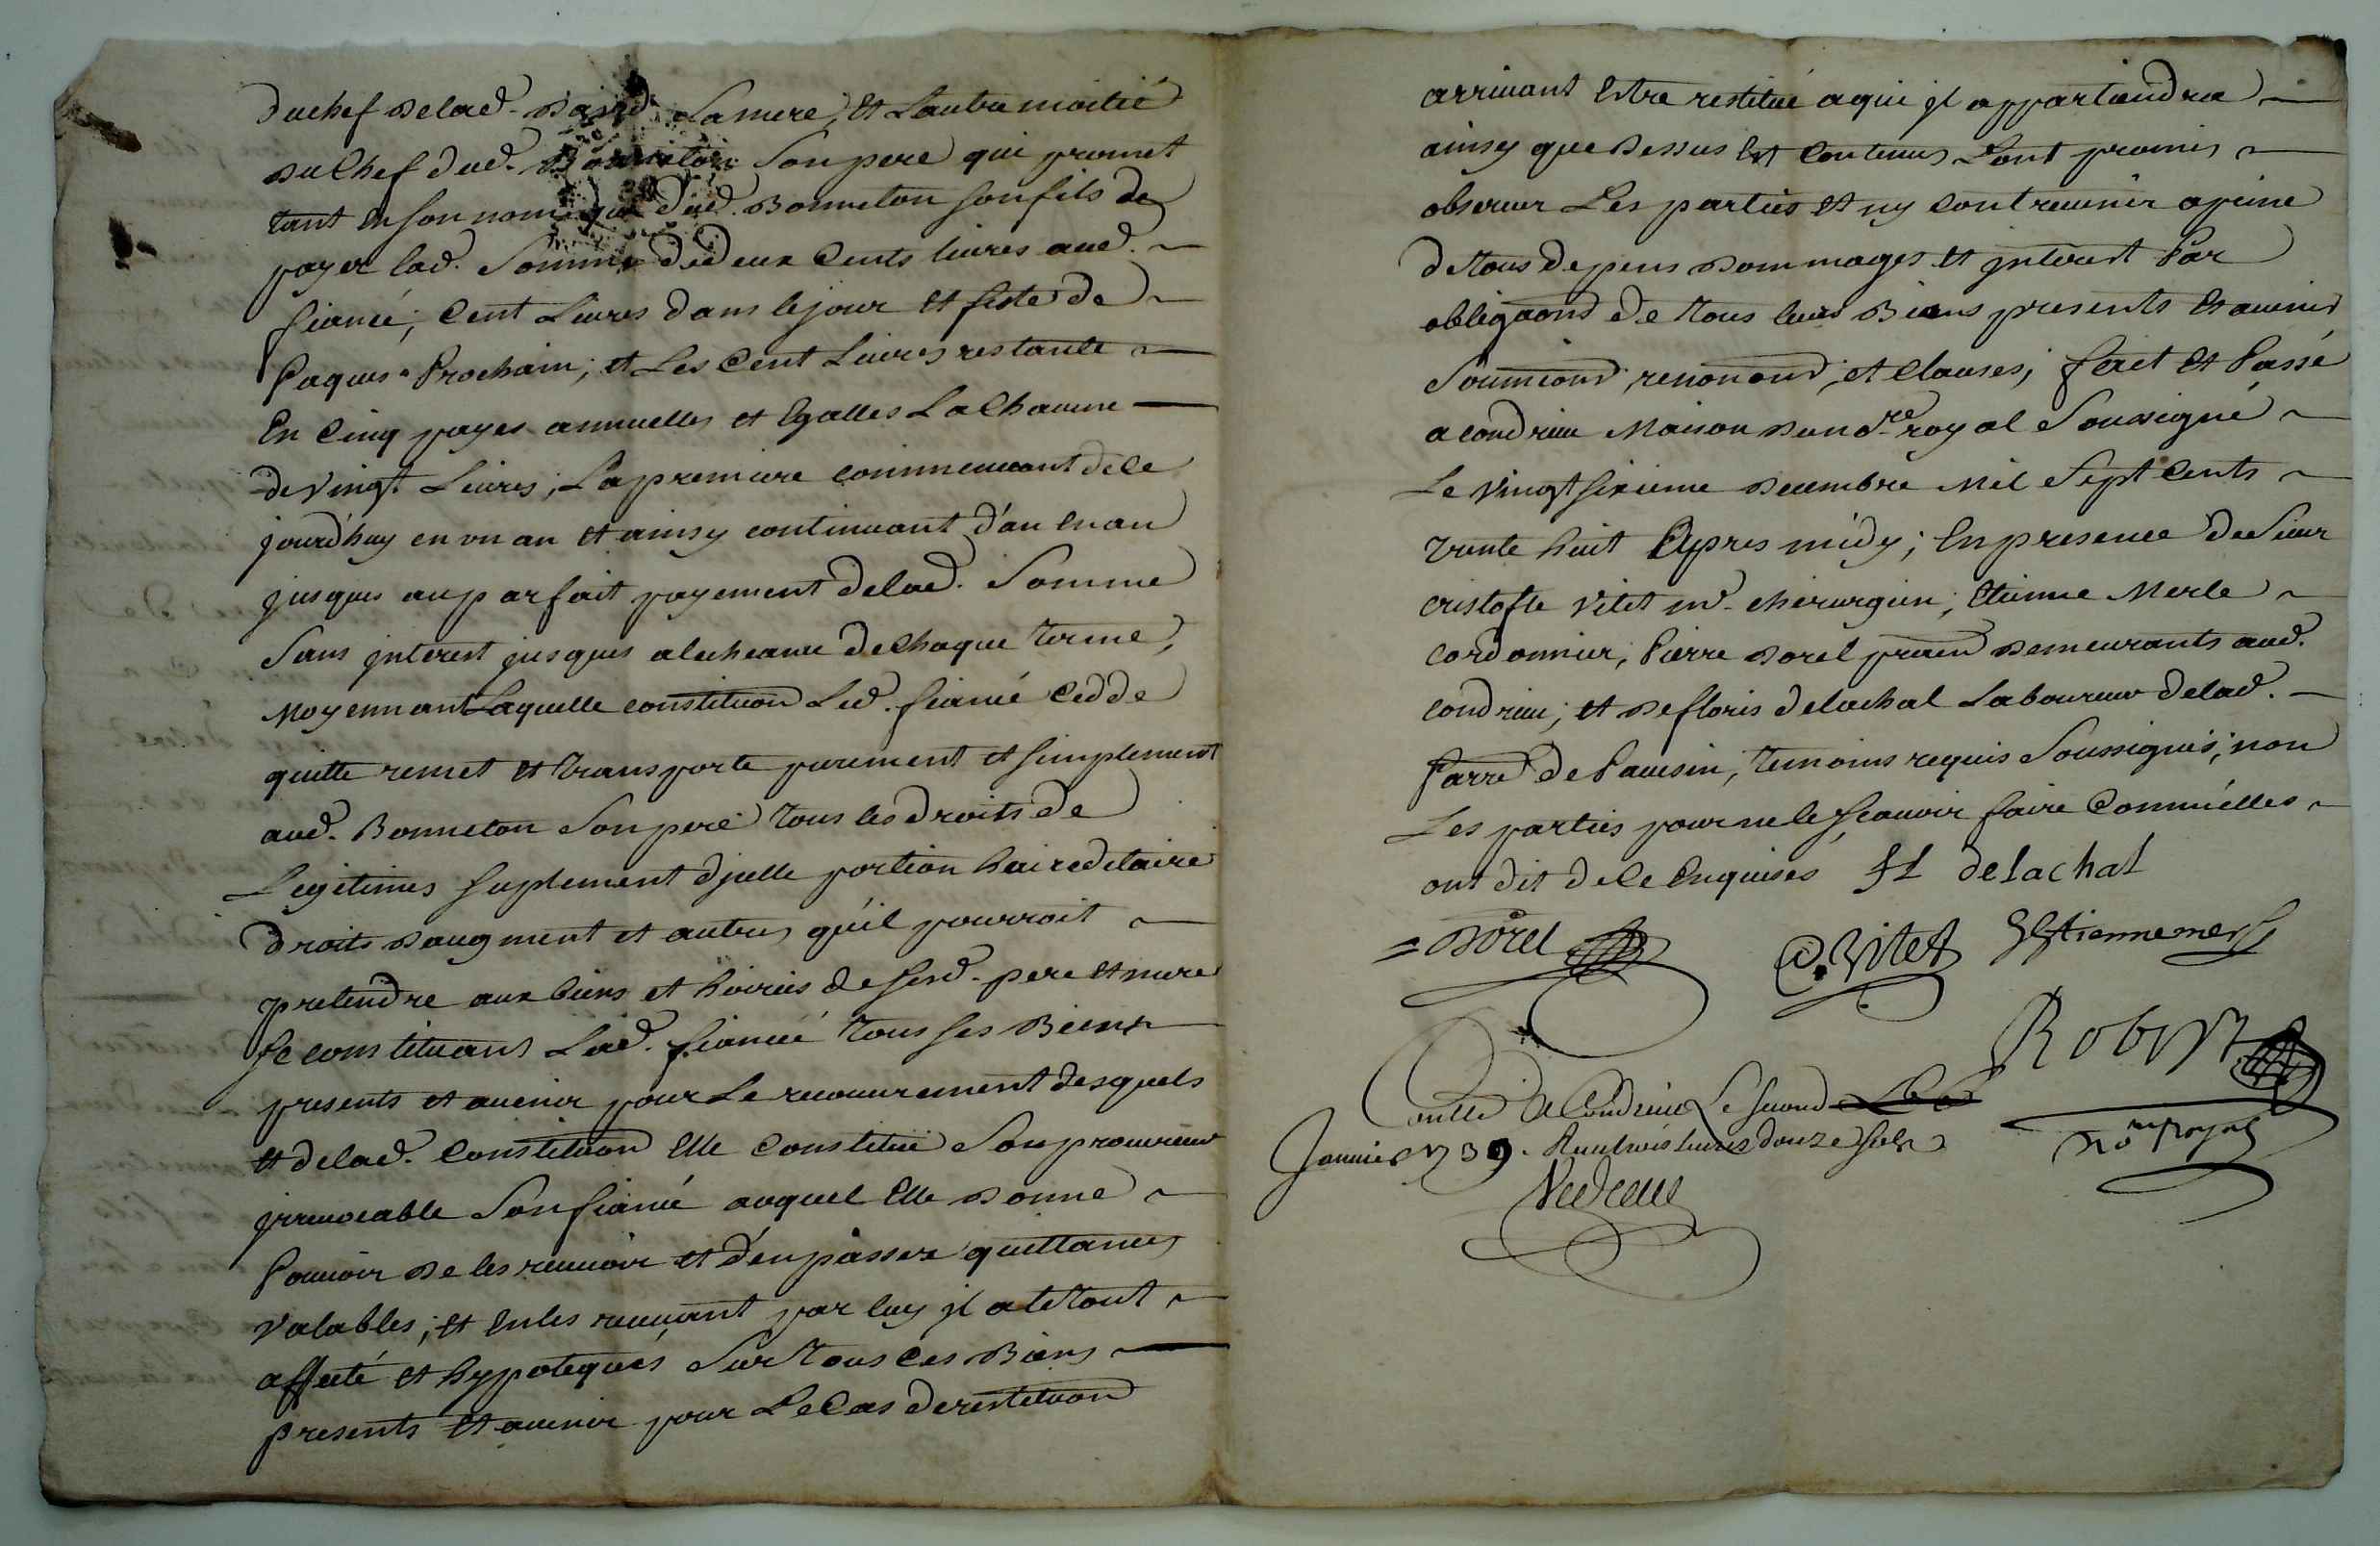 du chef de lad. David sa mere, et l'autre moitié
du chef dud. Bonneton son pere qui promet
tant en son nom que dud. Bonneton son fils de
payer lad. somme de deux cents livres aud.
fiancé; cent livres dans le jour et feste de
Paques prochain; et les cent livres restante
en cinq payes annuelles et egalles la chacune
de vingt livres, la premiere commencant de ce
jourd'huy en un an et ainsy continuant d'an en an
jusques au parfait payement de lad. somme
sans interest jusques a lecheance de chaque terme,
moyennant laquelle constituon led. fiancé cedde
quitte remet et transporte purement et simplement
aud. Bonneton son pere tous les droits de
legitimes suplement d'jcelle portion haireditaire
droits daugment et autres qu'il pourroit
pretendre aux biens et hoiries de sesd. pere et mere
se constituant lad. fiancée tous ses biens
presents et avenir pour le recouvrement desquels
et de lad. constituon elle constitue son procureur
jrrevocable son fiancé auquel elle donne
pouvoir de les recevoir et d'en passer quittances
valables; et en les recevant par luy jl a le tout
affecté et hypotequés sur tous ces biens
presents et avenir pour le cas de restituon
arrivant estre restitué a qui jl appartiendra
ainsy que dessus est contenus sont promis
observer les parties et ny contrevenir a peine
de tous depens dommages et jnterest par
obligaons de tous leurs biens presents et avenir
soumions, renonons, et clauses; fait et passé
a condrieu maison du no.re royal soussigné
le vingt sixieme decembre mil sept cents
trente huit apres midy; en presence de sieur
cristofle vitet m.e chirurgien; etienne Merle
cordonnier, Pierre Borel praen demeurants aud.
condrieu; et de floris delachal laboureur de lad.
parre de Pavesin, temoins requis soussignés; non
les parties pour ne le scavoir faire comme elles
ont dit de ce enquises fl delachal
= Borel C. Vitet Estienne merl
Robert
Conlle a Condrieu le second
no.re royal
Janvier 1739. Recu trois livres douze sols